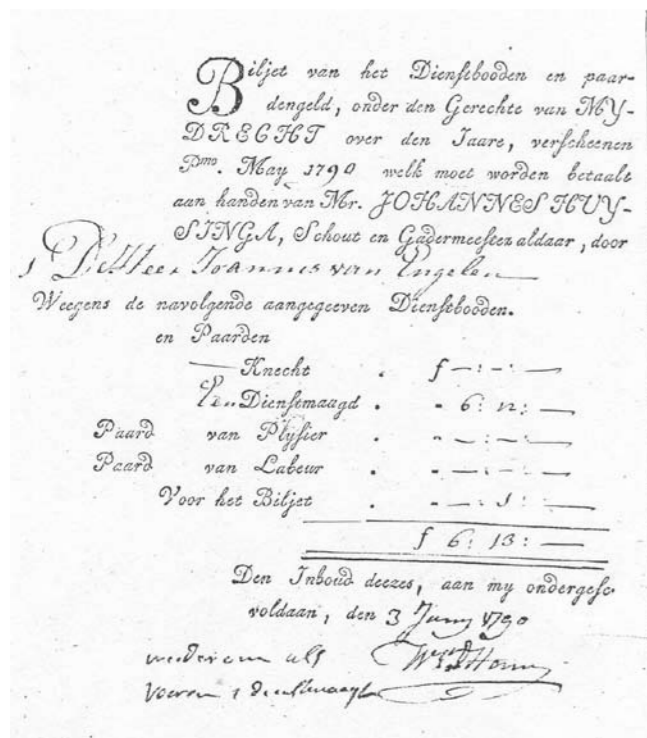 Biljet van het Dienstbooden en paar-
dengeld, onder den Gerechte van MY-
DRECHT over den Jaare, verscheenen
Pmo. May 1790 welk moet worden betaalt
aan handen van Mr. JOHANNES HUY-
SINGA, Schout en Gadermeester aldaar, door
De Heer Joannes van Engelen
Weegens de navolgende aangegeeven Dienstbooden.
en Paarden
— Knecht . f —:—:—
Een Dienstmaagd . " 6: 12: —
Paard van Plysier . " —:—:—
Paard van Labeur . " —:—:—
Voor het Biljet . " —. 1: —
f 6: 13: —
Den Inhoud deezes, aan my ondergesc.
voldaan, den 3 Juny 1790
wederom als
voren 1 dienstmaagt